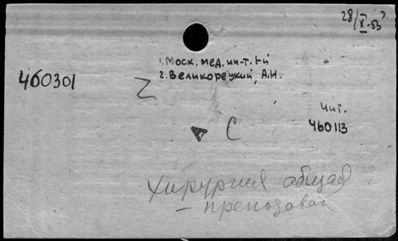 28/X-53
1. Моск. мед. ин-т. I-й
2. Великорецкий, А.Н.
460301
Z
Чит.
460113
С
Хирургия общая
– преподаван